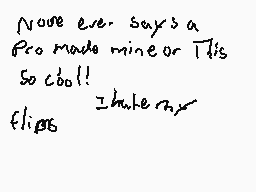 None ever says a
Pro made mine or This
so cool!
I hate my
flips